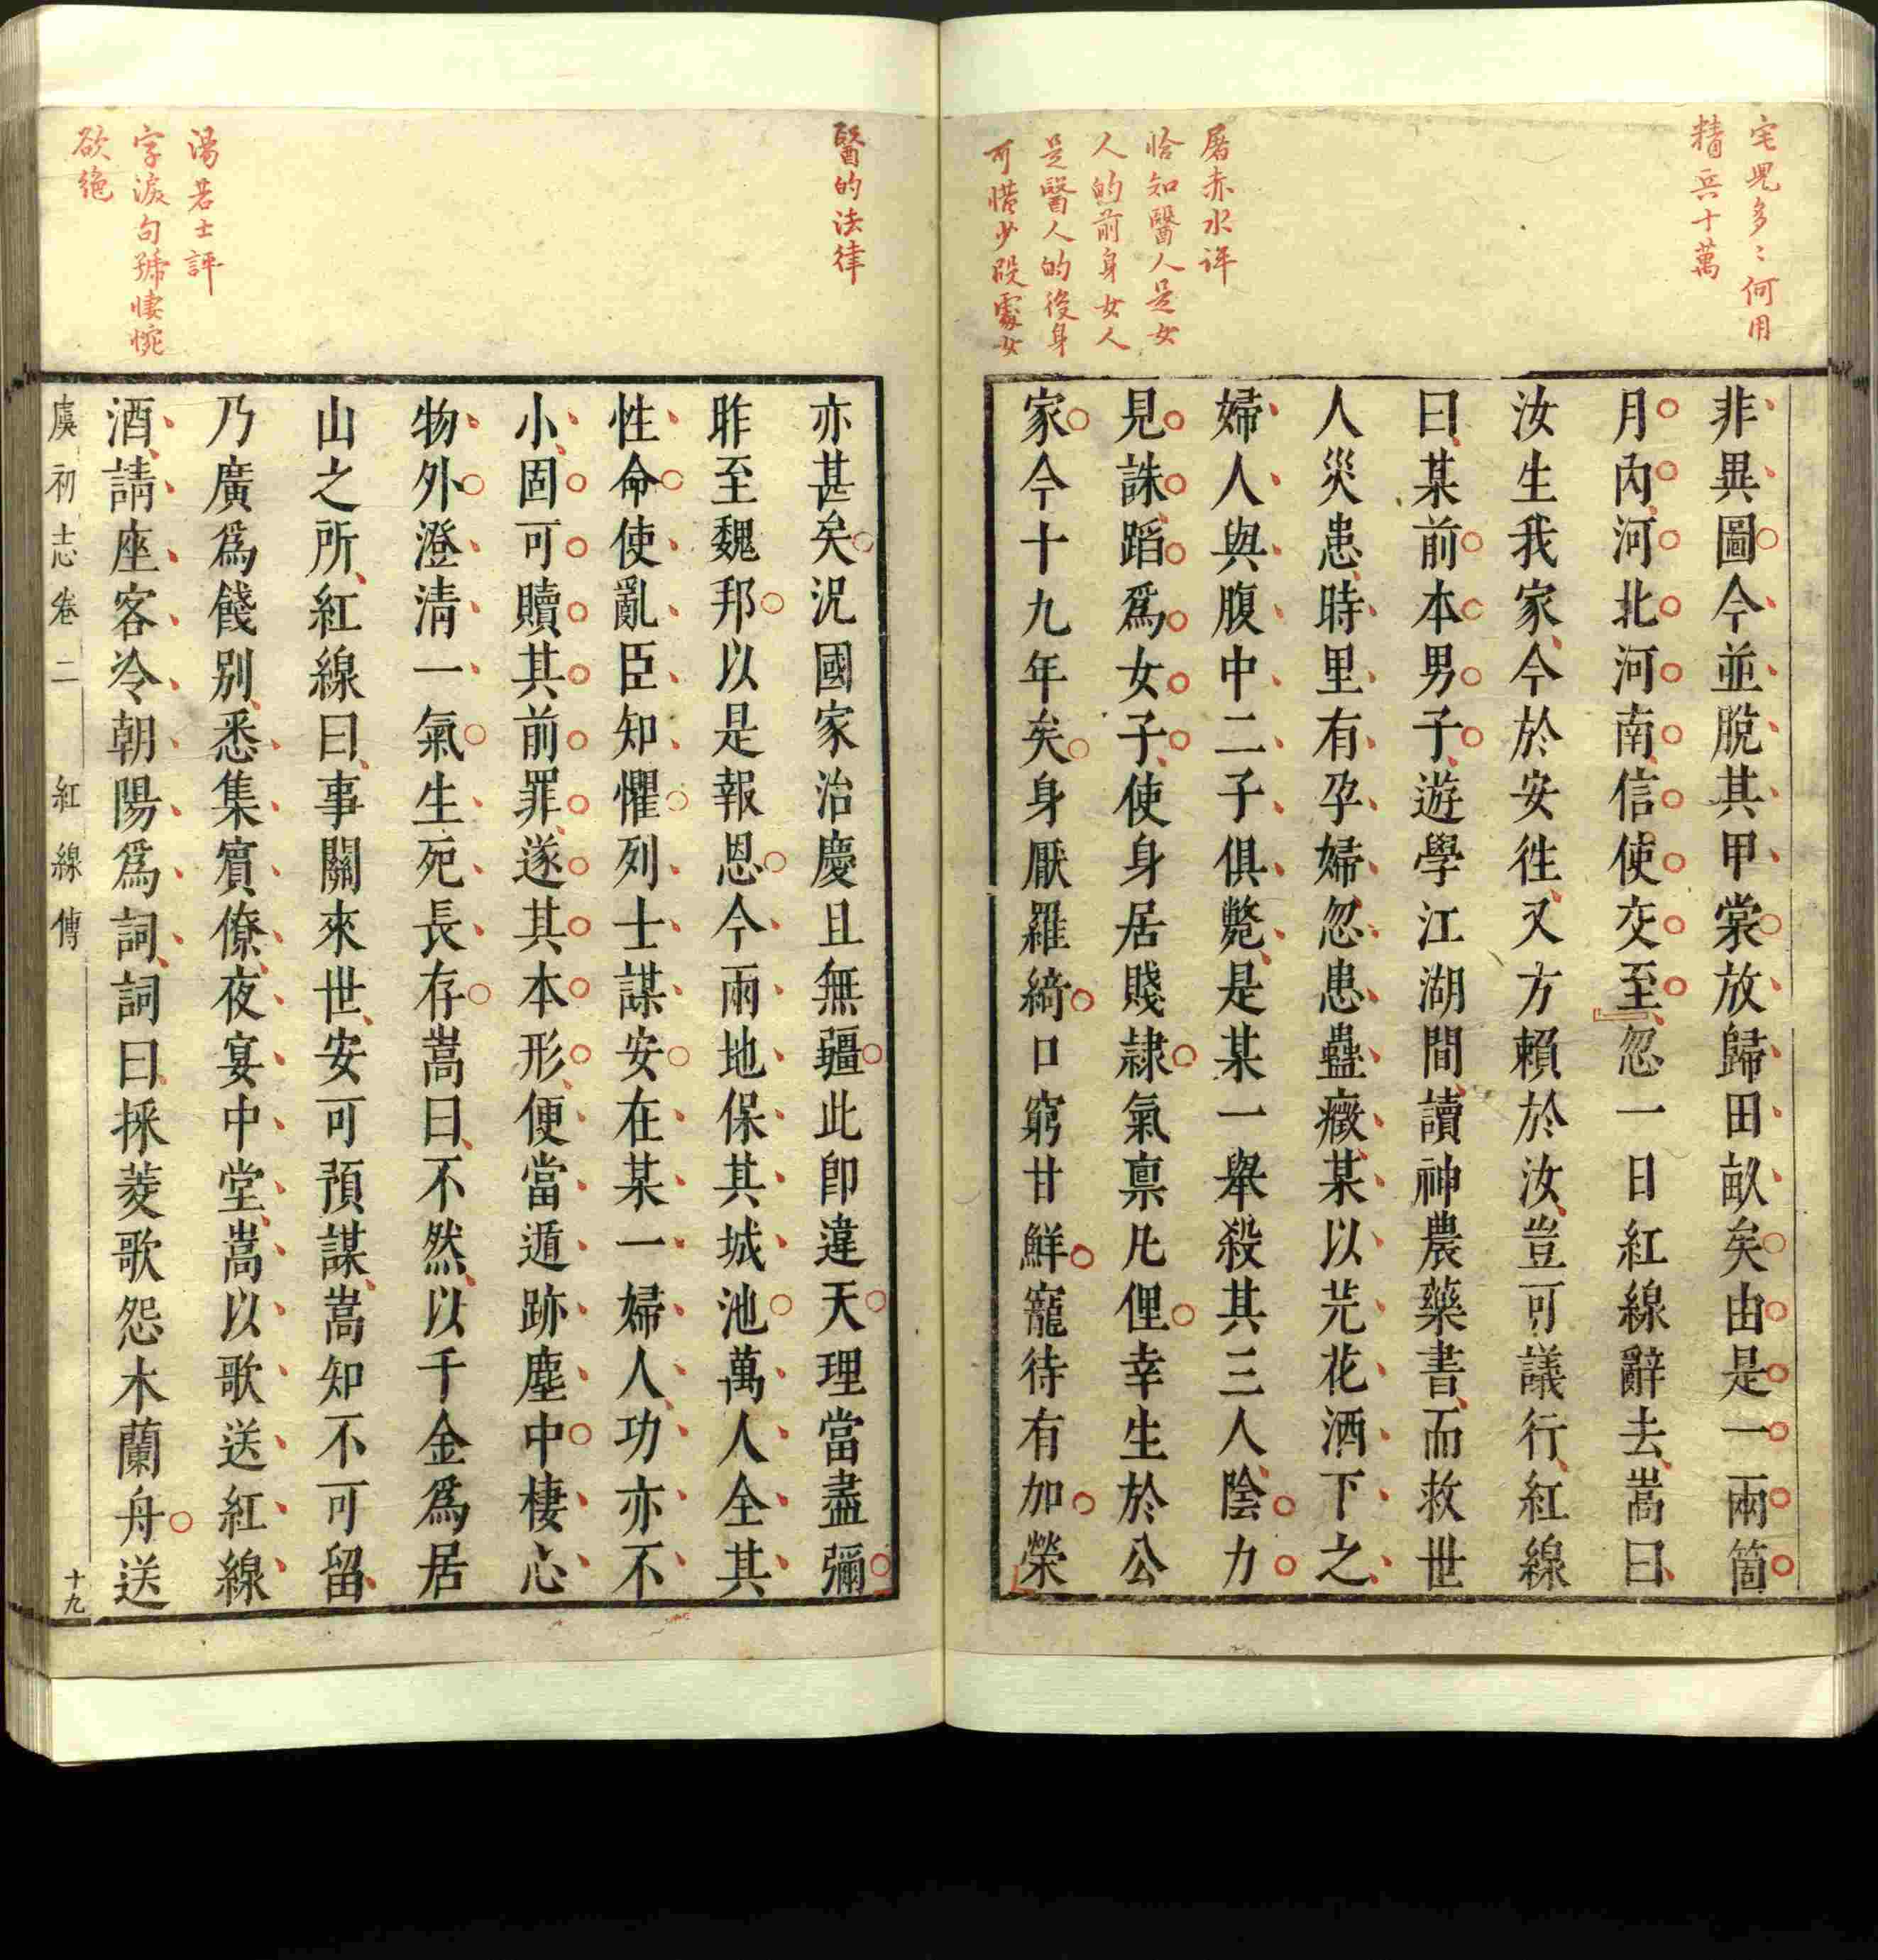 宅兒多々何用
精兵十萬
屠赤水評
恰知醫人是女
人的前身女人
是醫人的後身
可惜少殺處女
非異圖今並脫其甲裳放歸田畝矣由是一兩箇
月內河北河南信使交至忽一日紅線辭去嵩曰
汝生我家今於安徃又方賴於汝豈可議行紅線
曰某前本男子遊學江湖間讀神農藥書而救世
人災患時里有孕婦忽患蠱癥某以芫花酒下之
婦人與腹中二子俱斃是某一舉殺其三人陰力
見誅蹈爲女子使身居賤隷氣禀凡俚幸生於公
家今十九年矣身厭羅綺口窮甘鮮寵待有加榮
醫的法律
湯若士評
字淚句號悽惋
欲絕
亦甚矣況國家治慶且無疆此卽違天理當盡彌
昨至魏邦以是報恩今兩地保其城池萬人全其
性命使亂臣知懼列士謀安在某一婦人功亦不
小固可贖其前罪遂其本形便當遁跡塵中棲心
物外澄清一氣生死長存嵩曰不然以千金爲居
山之所紅線曰事關來世安可預謀嵩知不可留
乃廣爲餞别悉集賓僚夜宴中堂嵩以歌送紅線
酒請座客冷朝陽爲詞詞曰採菱歌怨木蘭舟送
虞初志卷二 紅線傳 十九